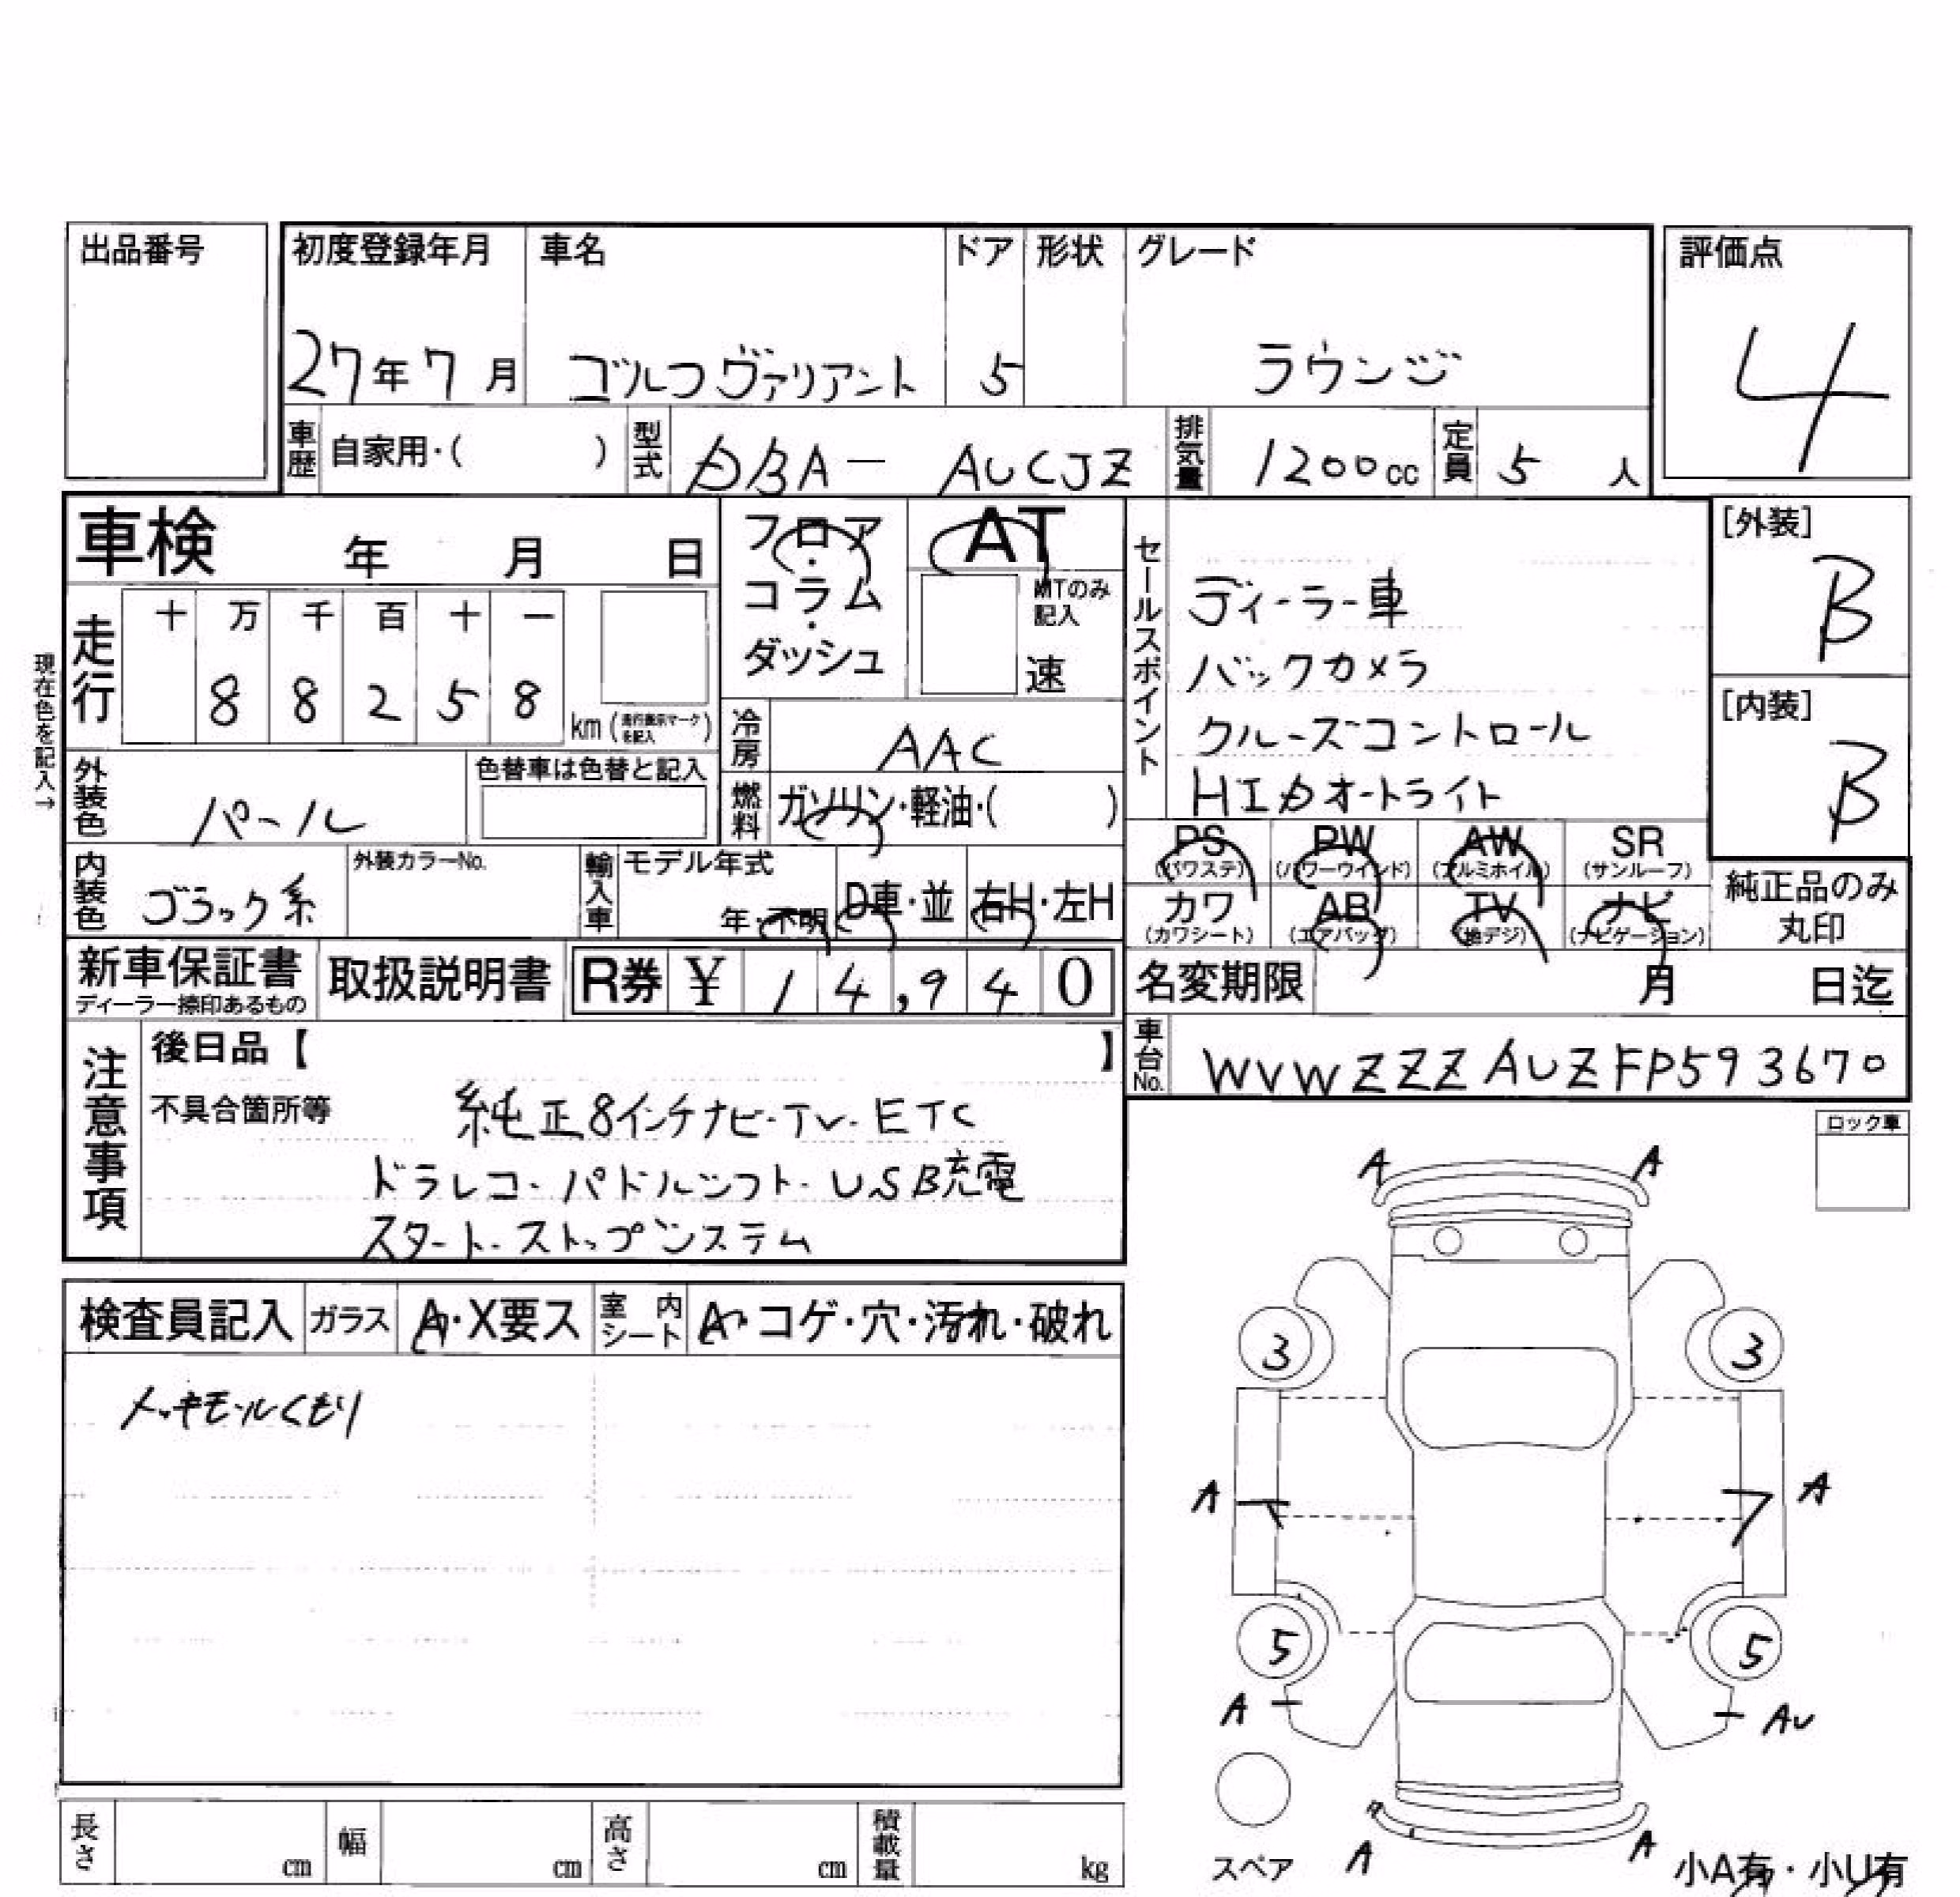 出品番号
初度登録年月 車名 ドア 形状 グレード
評価点
27年7月 ゴルフヴァリアント 5 ラウンジ
4
車歴 自家用・( ) 型式 DBA- AUCJZ 排気量 1200cc 定員 5 人
車検 年 月 日
フロア・コラム・ダッシュ
AT
MTのみ記入
速
セールスポイント
ディーラー車
バックカメラ
クルーズコントロール
HIDオートライト
[外装]
B
[内装]
B
現在色を記入→
走行 十 万 千 百 十 一
8 8 2 5 8 km (走行表示マークを記入)
冷房 AAC
外装色 パール 色替車は色替と記入
燃料 ガソリン・軽油・( )
PS (パワステ) PW (パワーウインド) AW (アルミホイル) SR (サンルーフ)
カワ (カワシート) AB (エアバッグ) TV (地デジ) ナビ (ナビゲーション)
純正品のみ丸印
内装色 ブラック系 外装カラーNo. 輸入車 モデル年式 年・不明 D車・並 右H・左H
新車保証書 ディーラー捺印あるもの 取扱説明書 R券 ¥ 14,940
名変期限 月 日迄
車台No. WVWZZZAUZFP593670
注意事項
後日品【 】
不具合箇所等 純正8インチナビ・TV・ETC
ドラレコ・パドルシフト・USB充電
スタート・ストップシステム
ロック車
検査員記入 ガラス A・X要ス 室内シート A・コゲ・穴・汚れ・破れ
メッキモールくもり
A A
3 3
A A
5 5
A AU
A A
スペア
小A有・小U有
長さ cm 幅 cm 高さ cm 積載量 kg